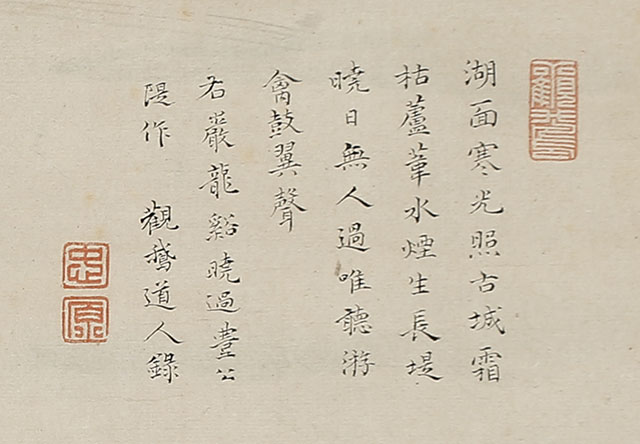 湖面寒光照古城霜
枯蘆葦水煙生長堤
曉日無人過唯聽游
禽鼓翼聲
右嚴龍谿曉過豊公
隄作 觀鵝道人錄
忠
原